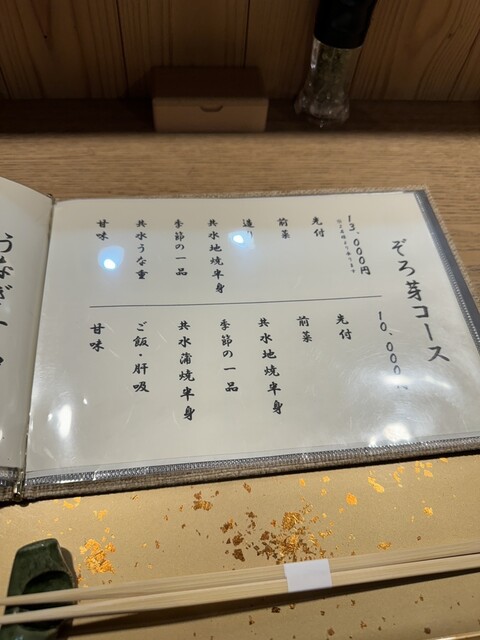 ぞろ芽コース
13,000円
先付
前菜
造り
共水地焼半身
季節の一品
共水うな重
甘味
10,000円
先付
前菜
共水地焼半身
季節の一品
共水蒲焼半身
ご飯・肝吸
甘味
うなぎ